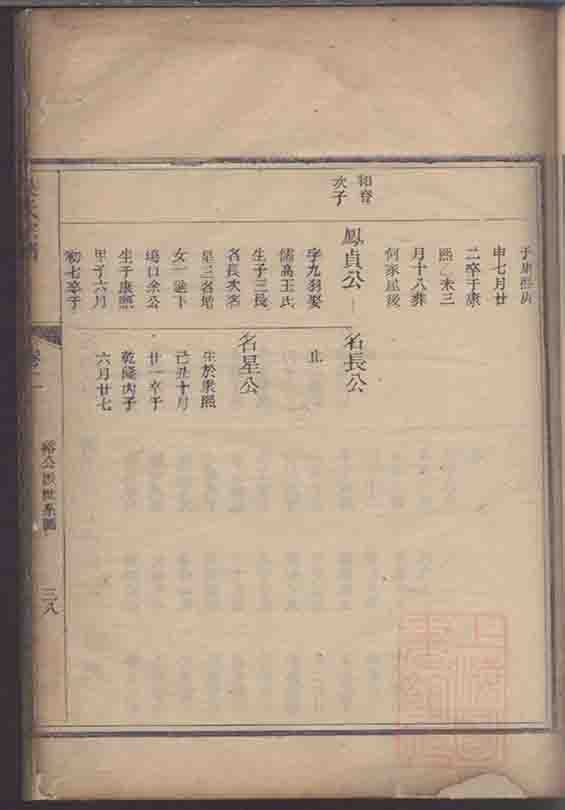 于康熙庚
申七月廿
二卒于康
熙乙未三
月十八葬
何家屋後
和育
次子
鳳貞公
名長公
字九羽娶
止
儒高王氏
生子三長
名長次名
名星公
星三名增
生於康熙
女一適下
己丑十月
境口余公
廿一卒于
生于康熙
乾隆丙子
甲子六月
六月廿七
初七卒于
裕公派世系圖
三八